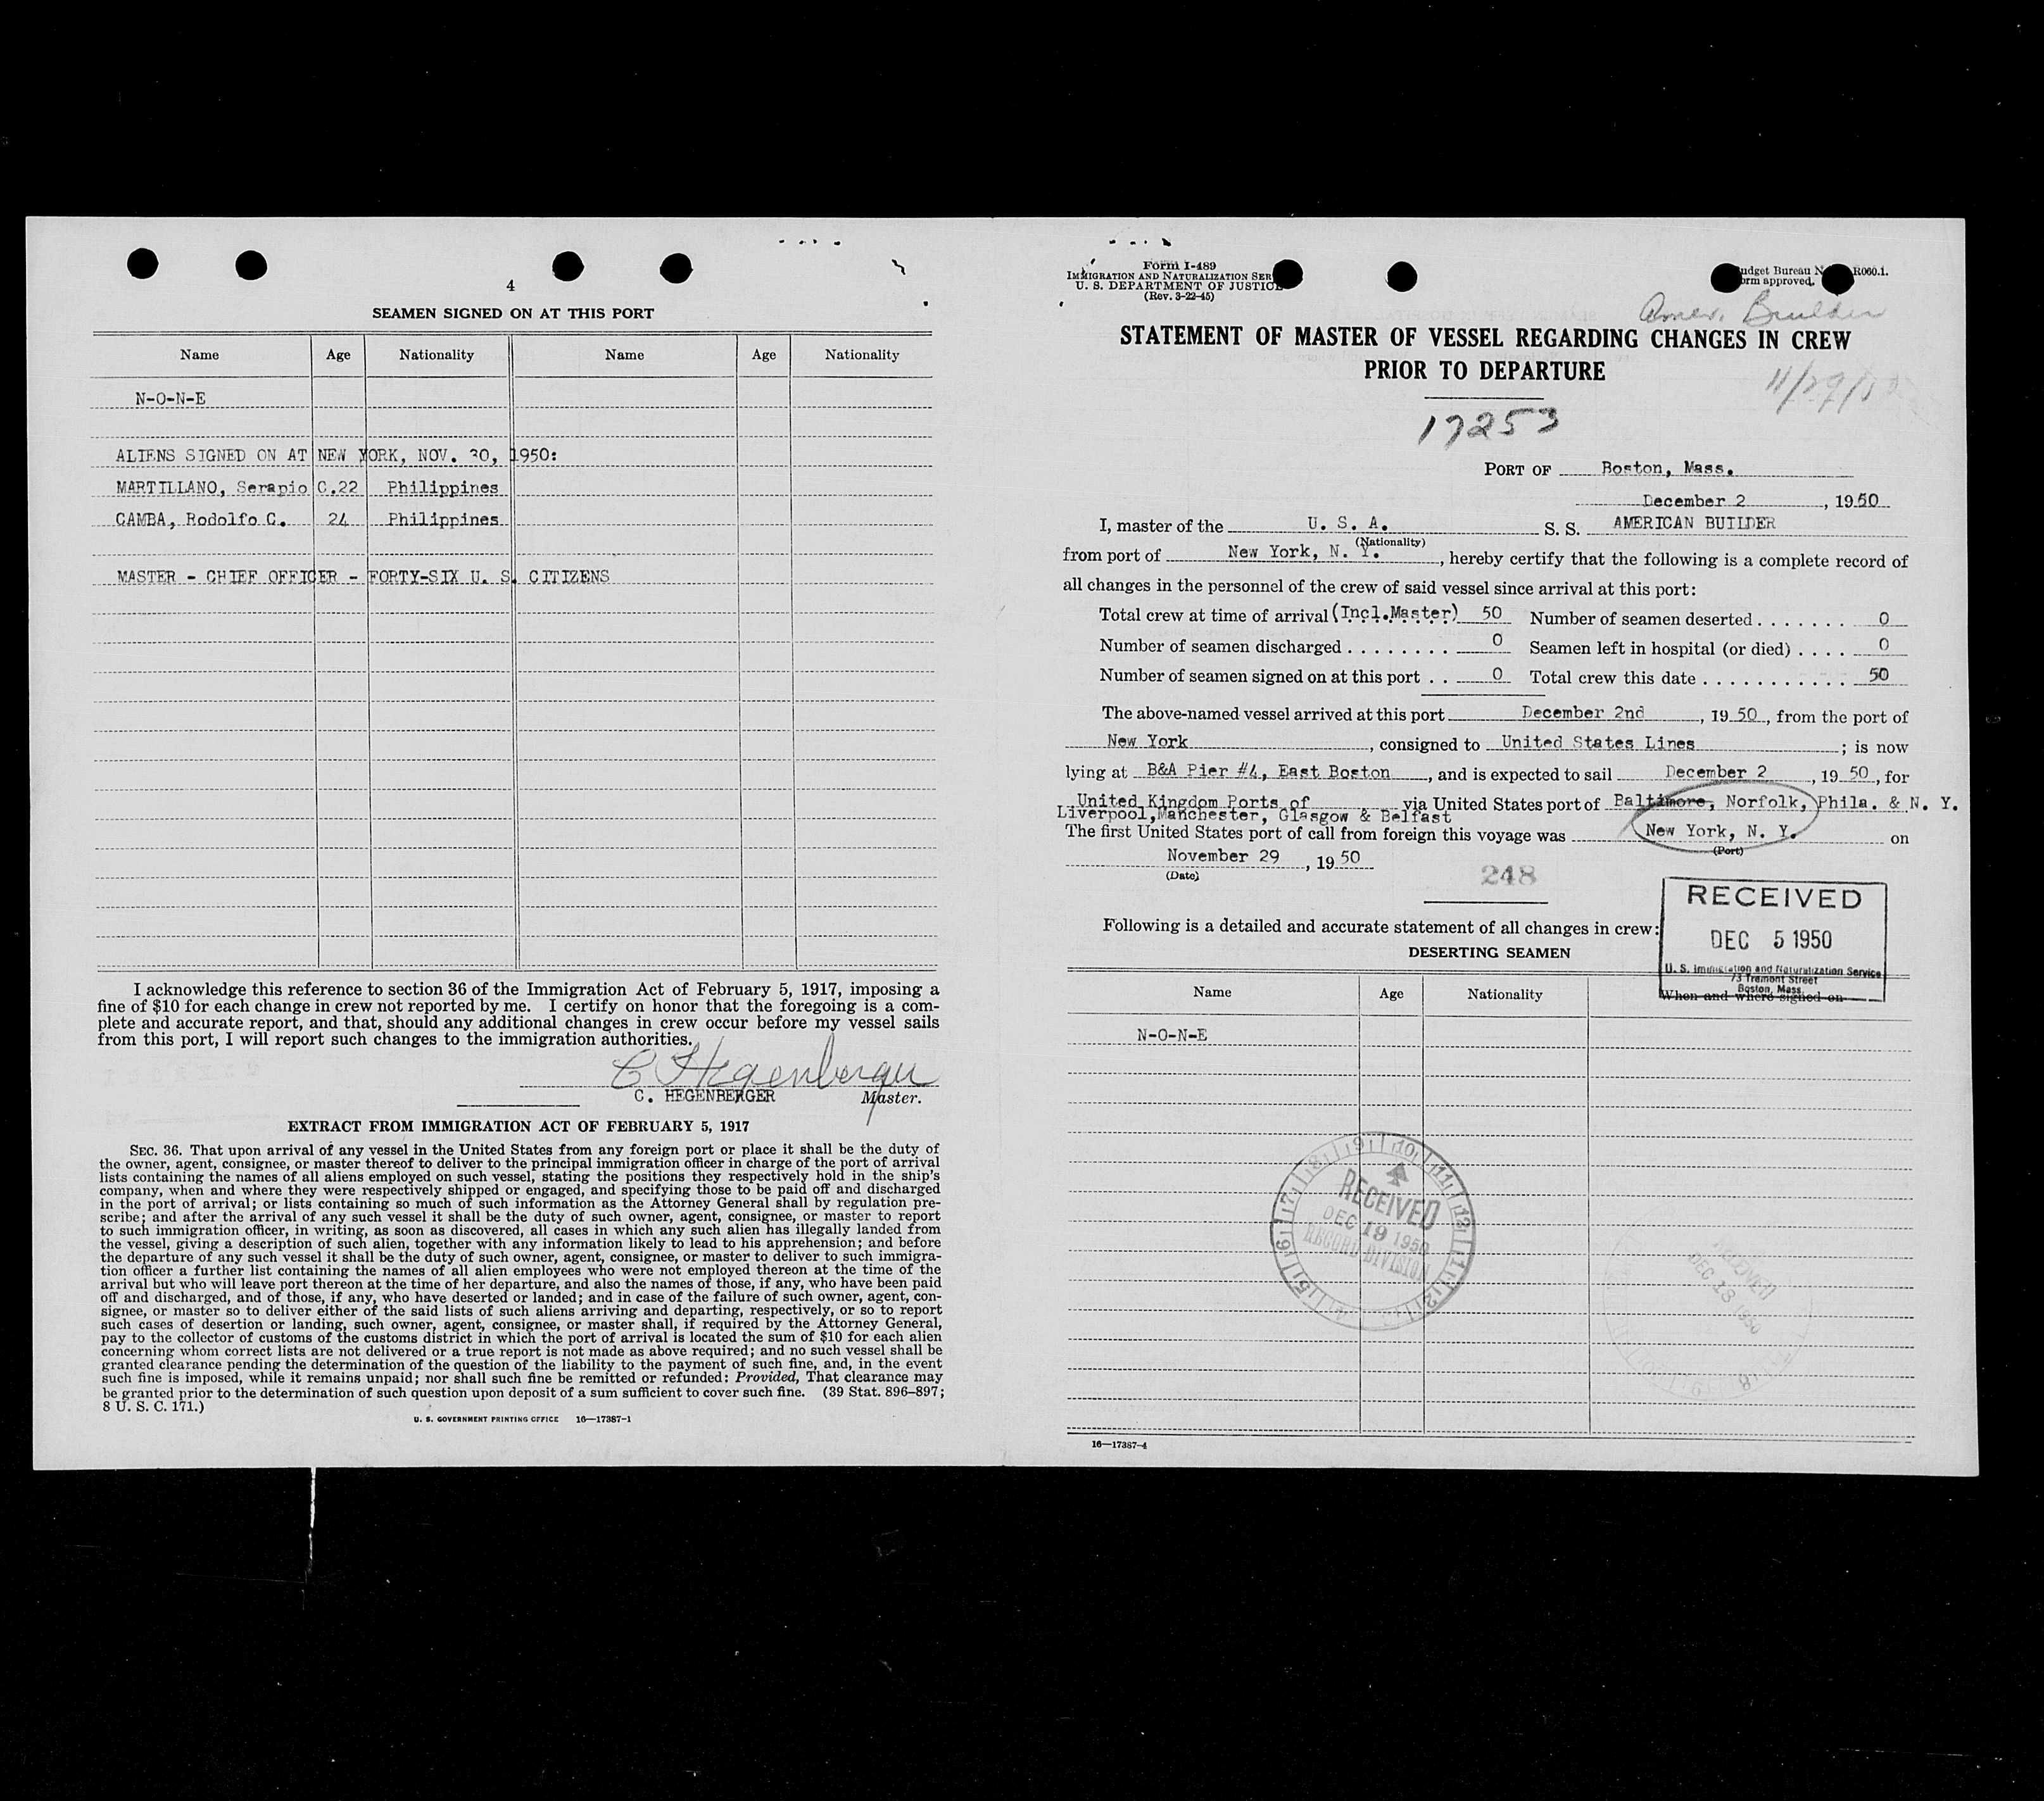 4
SEAMEN SIGNED ON AT THIS PORT
Name Age Nationality Name Age Nationality
N-O-N-E
ALIENS SIGNED ON AT NEW YORK, NOV. 30, 1950:
MARTILLANO, Serapio C. 22 Philippines
CAMBA, Rodolfo C. 24 Philippines
MASTER - CHIEF OFFICER - FORTY-SIX U. S. CITIZENS
I acknowledge this reference to section 36 of the Immigration Act of February 5, 1917, imposing a
fine of $10 for each change in crew not reported by me. I certify on honor that the foregoing is a com-
plete and accurate report, and that, should any additional changes in crew occur before my vessel sails
from this port, I will report such changes to the immigration authorities.
C Hegenberger
C. HEGENBERGER Master.
EXTRACT FROM IMMIGRATION ACT OF FEBRUARY 5, 1917
SEC. 36. That upon arrival of any vessel in the United States from any foreign port or place it shall be the duty of
the owner, agent, consignee, or master thereof to deliver to the principal immigration officer in charge of the port of arrival
lists containing the names of all aliens employed on such vessel, stating the positions they respectively hold in the ship's
company, when and where they were respectively shipped or engaged, and specifying those to be paid off and discharged
in the port of arrival; or lists containing so much of such information as the Attorney General shall by regulation pre-
scribe; and after the arrival of any such vessel it shall be the duty of such owner, agent, consignee, or master to report
to such immigration officer, in writing, as soon as discovered, all cases in which any such alien has illegally landed from
the vessel, giving a description of such alien, together with any information likely to lead to his apprehension; and before
the departure of any such vessel it shall be the duty of such owner, agent, consignee, or master to deliver to such immigra-
tion officer a further list containing the names of all alien employees who were not employed thereon at the time of the
arrival but who will leave port thereon at the time of her departure, and also the names of those, if any, who have been paid
off and discharged, and of those, if any, who have deserted or landed; and in case of the failure of such owner, agent, con-
signee, or master so to deliver either of the said lists of such aliens arriving and departing, respectively, or so to report
such cases of desertion or landing, such owner, agent, consignee, or master shall, if required by the Attorney General,
pay to the collector of customs of the customs district in which the port of arrival is located the sum of $10 for each alien
concerning whom correct lists are not delivered or a true report is not made as above required; and no such vessel shall be
granted clearance pending the determination of the question of the liability to the payment of such fine, and, in the event
such fine is imposed, while it remains unpaid; nor shall such fine be remitted or refunded: Provided, That clearance may
be granted prior to the determination of such question upon deposit of a sum sufficient to cover such fine. (39 Stat. 896-897;
8 U. S. C. 171.)
U. S. GOVERNMENT PRINTING OFFICE 16—17387-1
Form I-489
IMMIGRATION AND NATURALIZATION SER
U. S. DEPARTMENT OF JUSTICE
(Rev. 3-22-45)
udget Bureau N R060.1.
orm approved.
Amer. Builder
STATEMENT OF MASTER OF VESSEL REGARDING CHANGES IN CREW
PRIOR TO DEPARTURE
11/29/50
17253
PORT OF Boston, Mass.
December 2, 1950
I, master of the U. S. A. S. S. AMERICAN BUILDER
(Nationality)
from port of New York, N. Y., hereby certify that the following is a complete record of
all changes in the personnel of the crew of said vessel since arrival at this port:
Total crew at time of arrival (Incl.Master) 50 Number of seamen deserted . . . . . . . 0
Number of seamen discharged . . . . . . . . 0 Seamen left in hospital (or died) . . . . 0
Number of seamen signed on at this port . . 0 Total crew this date . . . . . . . . . . . . 50
The above-named vessel arrived at this port December 2nd, 19 50, from the port of
New York, consigned to United States Lines; is now
lying at B&A Pier #4, East Boston, and is expected to sail December 2, 19 50, for
United Kingdom Ports of via United States port of Baltimore, Norfolk, Phila. & N. Y.
Liverpool,Manchester, Glasgow & Belfast
The first United States port of call from foreign this voyage was New York, N. Y. on
(Port)
November 29, 19 50
(Date)
248
RECEIVED
DEC 5 1950
U. S. Immigration and Naturalization Service
73 Tremont Street
Boston, Mass.
Following is a detailed and accurate statement of all changes in crew:
DESERTING SEAMEN
Name Age Nationality When and where signed on
N-O-N-E
RECEIVED
DEC 19 1950
RECORD DIVISION
RECEIVED
DEC 18 1950
16—17387-4